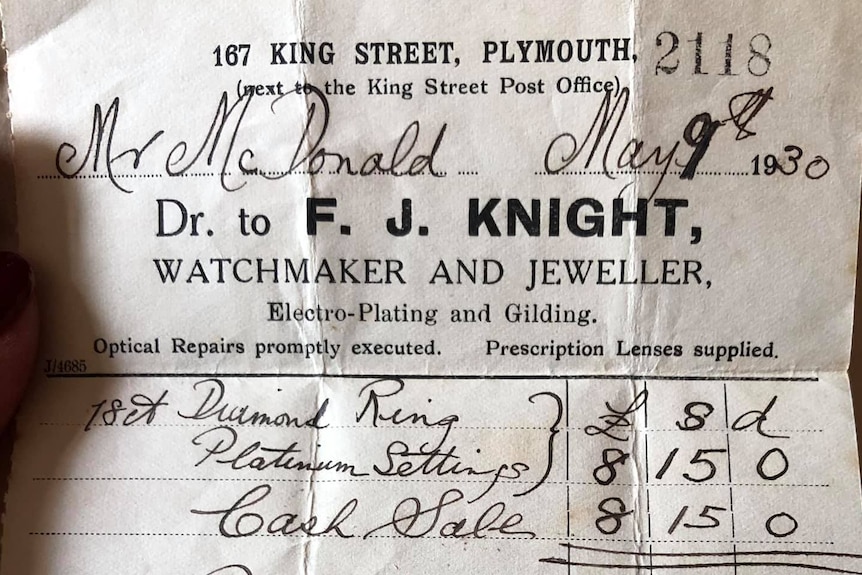 167 KING STREET, PLYMOUTH, 2118
(next to the King Street Post Office)
Mr McDonald May 9th 1930
Dr. to F. J. KNIGHT,
WATCHMAKER AND JEWELLER,
Electro-Plating and Gilding.
Optical Repairs promptly executed. Prescription Lenses supplied.
J/4685
18ct Diamond Ring £ s d
Platinum Settings 8 15 0
Cash Sale 8 15 0